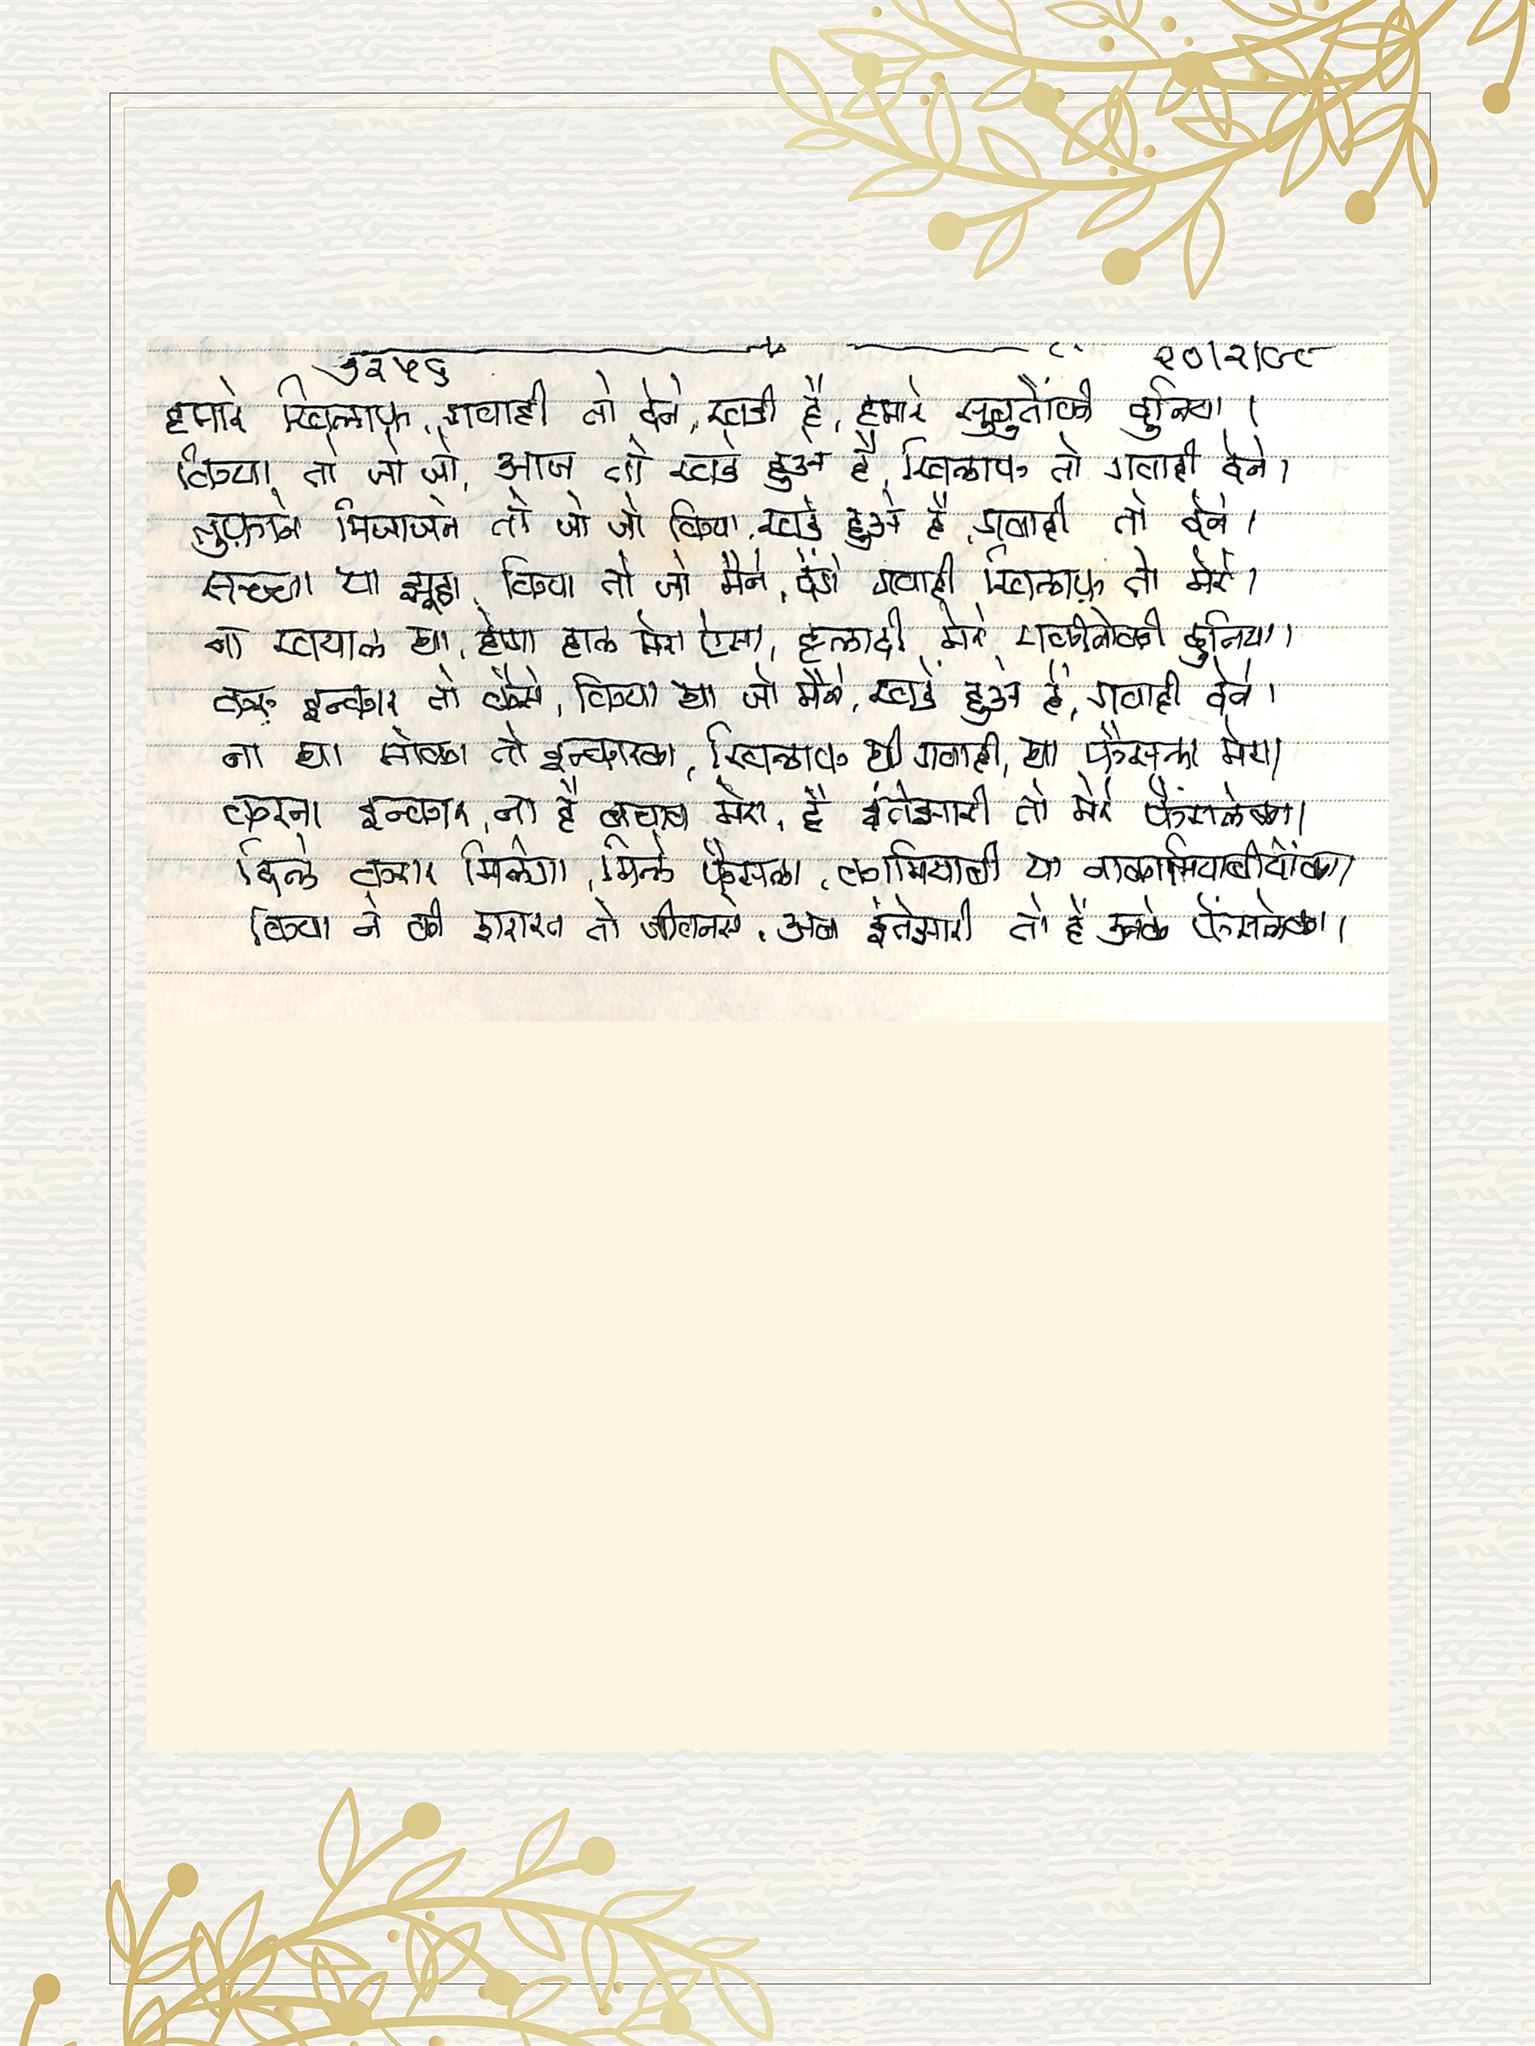 ३२५६ २०/२/८९
हमारे खिलाफ़, गवाही तो देने, खडी है, हमारे सुबुतोंकी दुनिया।
किया तो जो जो, आज तो खडे हुअे है, खिलाफ तो गवाही देने।
तुफ़ाने मिजाजने तो जो जो किया, खडे हुअे है, गवाही तो देने।
सच्चा या झूठा, किया तो जो मैने, देंगे गवाही खिलाफ़ तो मेरे।
ना खयाल था, होगा हाल मेरा ऐसा, हलादी मेरे, यकीनोकी दुनिया।
करू इन्कार तो कैसे, किया था जो मैने, खडे हुअे हैं, गवाही देने।
ना था मोका तो इन्कारका, खिलाफ थी गवाही, था फैसला मेरा।
करना इन्कार, ना है बचाव मेरा, है इंतेझारी तो मेरे फैंसलेका।
दिलें करार मिलेगा, मिले फैसला, कामियाबी या नाकामियाबीयोंका।
किया ने की शरारत तो जीवनसे, अब इंतेझारी तो हैं उनके फैंसलेका।